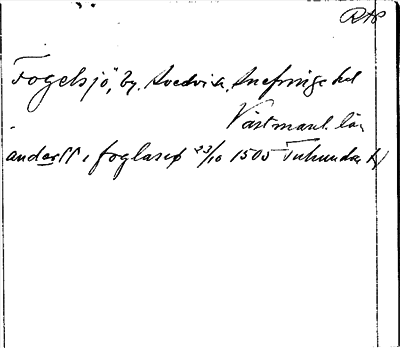 RAP
Fogelsjö, by. Svedvi sn, Snefringe hd
Västmanl. län
anderss i foglasiø 23/10 1505 Tuhundra h)